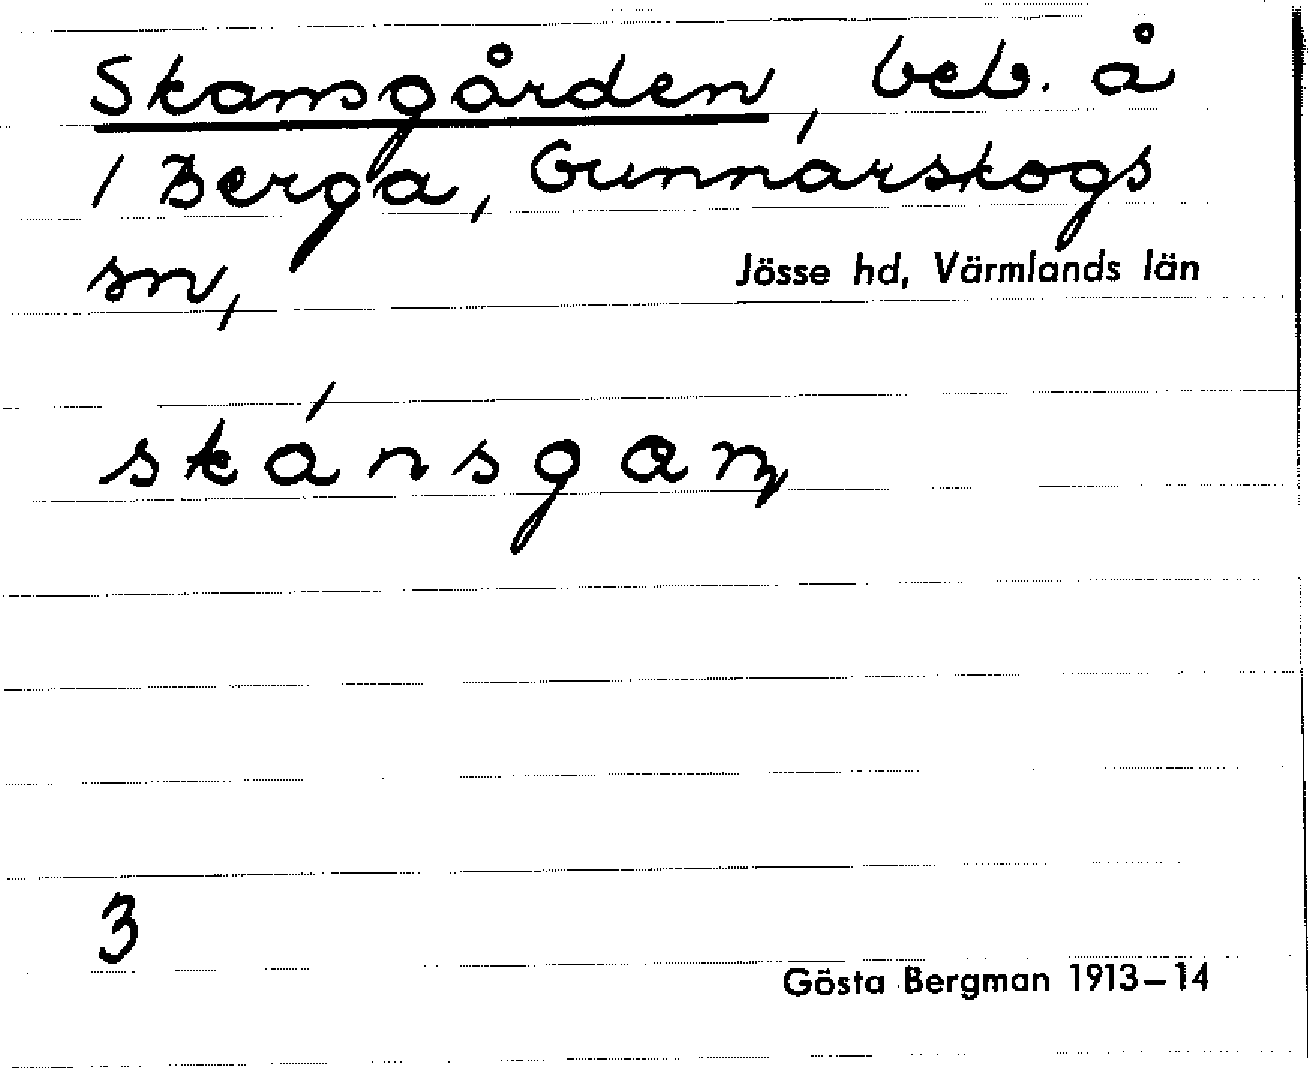 Skansgården, beb. å
1 Berga, Gunnarskogs
sn,
Jösse hd, Värmlands län
skánsgaɳ
3
Gösta Bergman 1913–14